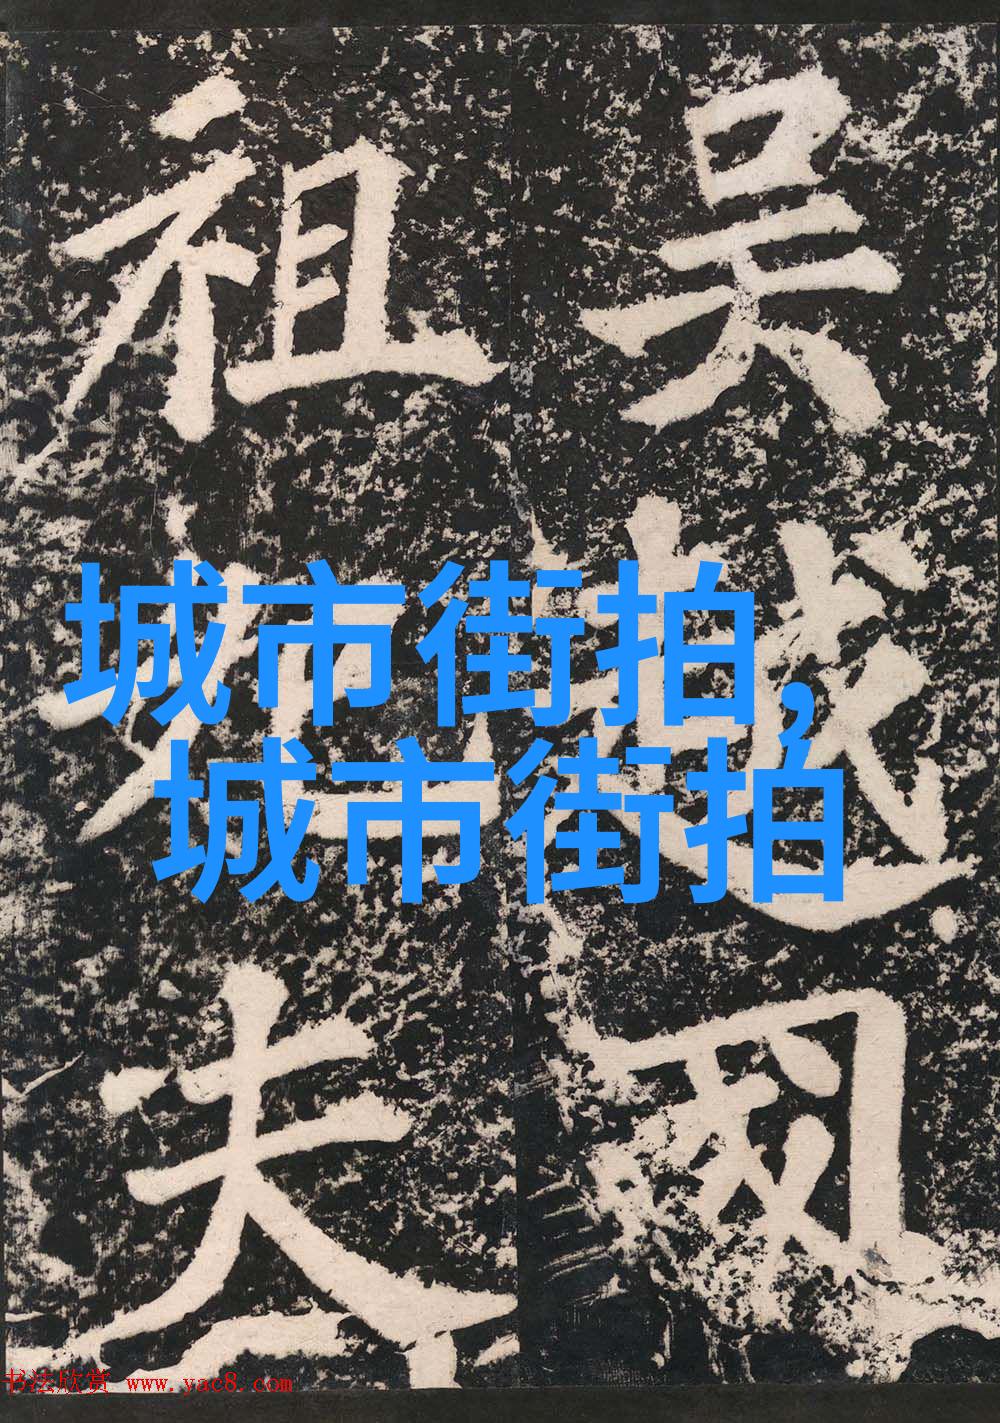 吴越国
祖妣
夫
城市街拍,
城市街拍
书法欣赏 www.yac8.com